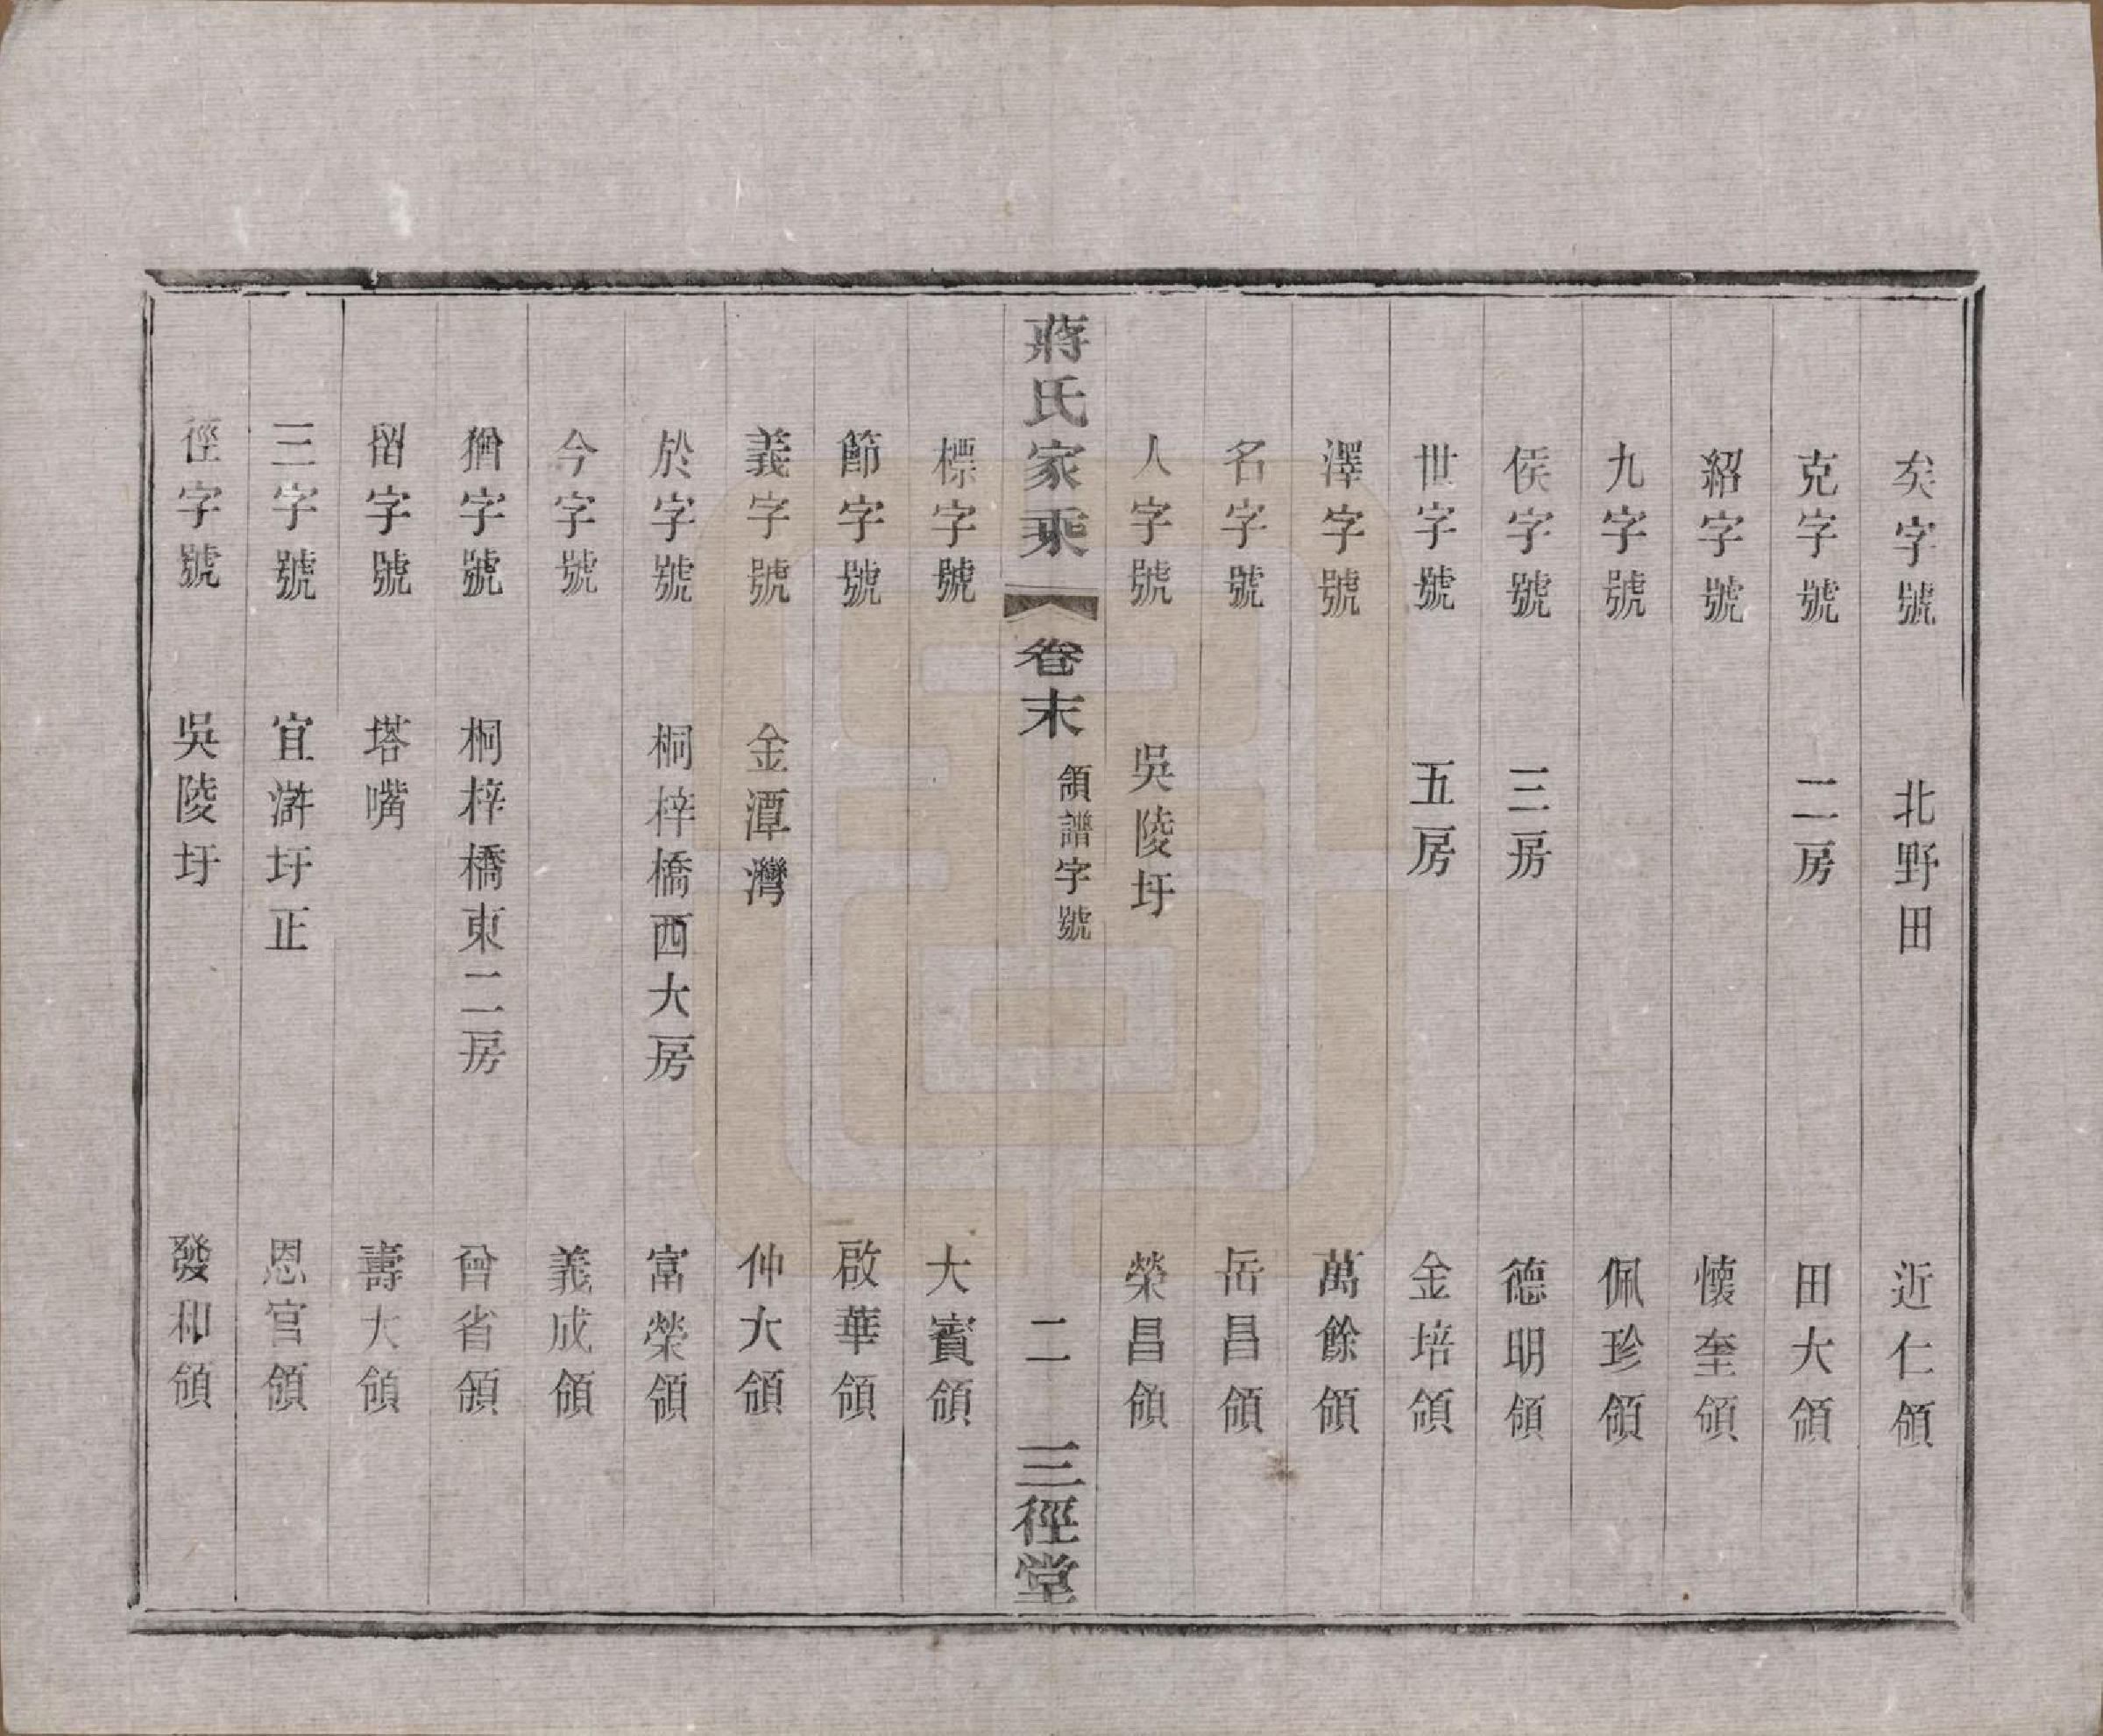 矣字號 北野田 近仁領
克字號 二房 田大領
紹字號 懷奎領
九字號 佩珍領
侯字號 三房 德明領
世字號 五房 金培領
澤字號 萬餘領
名字號 岳昌領
人字號 吳陵圩 榮昌領
蔣氏家乘 卷末 領譜字號 二 三徑堂
標字號 大賓領
節字號 啟華領
義字號 金潭灣 仲大領
於字號 桐梓橋西大房 富榮領
今字號 義成領
猶字號 桐梓橋東二房 曾省領
留字號 塔嘴 壽大領
三字號 宜滸圩正 恩官領
徑字號 吳陵圩 發和領